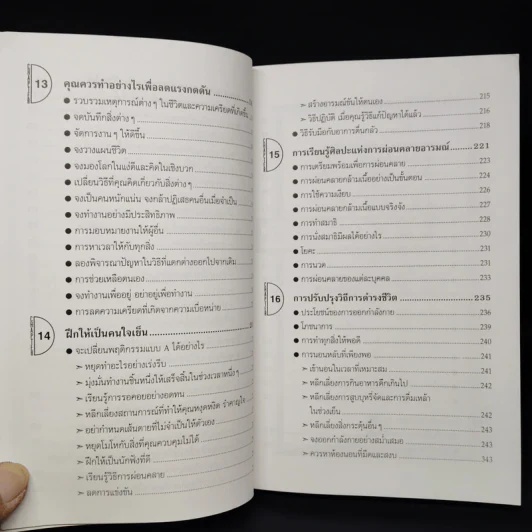 13 คุณควรทำอย่างไรเพื่อลดแรงกดดัน
รวบรวมเหตุการณ์ต่างๆ ในชีวิตและความเครียดที่เกิดขึ้น
จดบันทึกสิ่งต่างๆ
จัดการงานๆ ให้ดีขึ้น
จงวางแผนชีวิต
จงมองโลกในแง่ดีและคิดในเชิงบวก
เปลี่ยนวิธีที่คุณคิดเกี่ยวกับสิ่งต่างๆ
จงเป็นคนหนักแน่น จงกล้าปฏิเสธคนอื่นเมื่อจำเป็น
จงทำงานอย่างมีประสิทธิภาพ
การมอบหมายงานให้ผู้อื่น
การหาเวลาให้กับทุกสิ่ง
ลองพิจารณาปัญหาในวิธีที่แตกต่างออกไปจากเดิม
การช่วยเหลือตนเอง
จงทำงานเพื่ออยู่ อย่าอยู่เพื่อทำงาน
การลดความเครียดที่เกิดจากความเบื่อหน่าย
14 ฝึกให้เป็นคนใจเย็น
จะเปลี่ยนพฤติกรรมแบบ A ได้อย่างไร
➤ หยุดทำอะไรอย่างเร่งรีบ
➤ มุ่งมั่นทำงานชิ้นหนึ่งให้เสร็จสิ้นในช่วงเวลาหนึ่งๆ
➤ เรียนรู้การรอคอยอย่างอดทน
➤ หลีกเลี่ยงสถานการณ์ที่ทำให้คุณหงุดหงิด รำคาญใจ
➤ อย่ากำหนดเส้นตายที่ไม่จำเป็นให้ตัวเอง
➤ หยุดโมโหกับสิ่งที่คุณควบคุมไม่ได้
➤ ฝึกให้เป็นนักฟังที่ดี
➤ เรียนรู้วิธีการผ่อนคลาย
➤ ลดการแข่งขัน
➤ สร้างอารมณ์ขันให้ตนเอง 215
➤ วิธีปฏิบัติ เมื่อคุณรู้วิธีแก้ปัญหาได้แล้ว 216
วิธีรับมือกับอาการตื่นกลัว 218
15 การเรียนรู้ศิลปะแห่งการผ่อนคลายอารมณ์ 221
การเตรียมพร้อมเพื่อการผ่อนคลาย 223
การผ่อนคลายกล้ามเนื้ออย่างเป็นขั้นตอน 224
การใช้ความเงียบ 227
การผ่อนคลายกล้ามเนื้อแบบจริงจัง 228
การทำสมาธิ 229
การนั่งสมาธิมีผลได้อย่างไร 230
โยคะ 231
การนวด 231
การผ่อนคลายของแต่ละบุคคล 233
16 การปรับปรุงวิถีการดำรงชีวิต 235
ประโยชน์ของการออกกำลังกาย 236
โภชนาการ 239
การทำทุกสิ่งให้พอดี 240
การนอนหลับที่เพียงพอ 241
➤ เข้านอนในเวลาที่เหมาะสม 242
➤ หลีกเลี่ยงการกินอาหารดึกเกินไป 242
➤ หลีกเลี่ยงการสูบบุหรี่จัดและการดื่มเหล้า
ในช่วงเย็น 242
➤ หลีกเลี่ยงสิ่งกระตุ้นอื่นๆ 243
➤ จงออกกำลังกายอย่างสม่ำเสมอ 243
➤ ควรหาห้องนอนที่มืดและสงบ 243